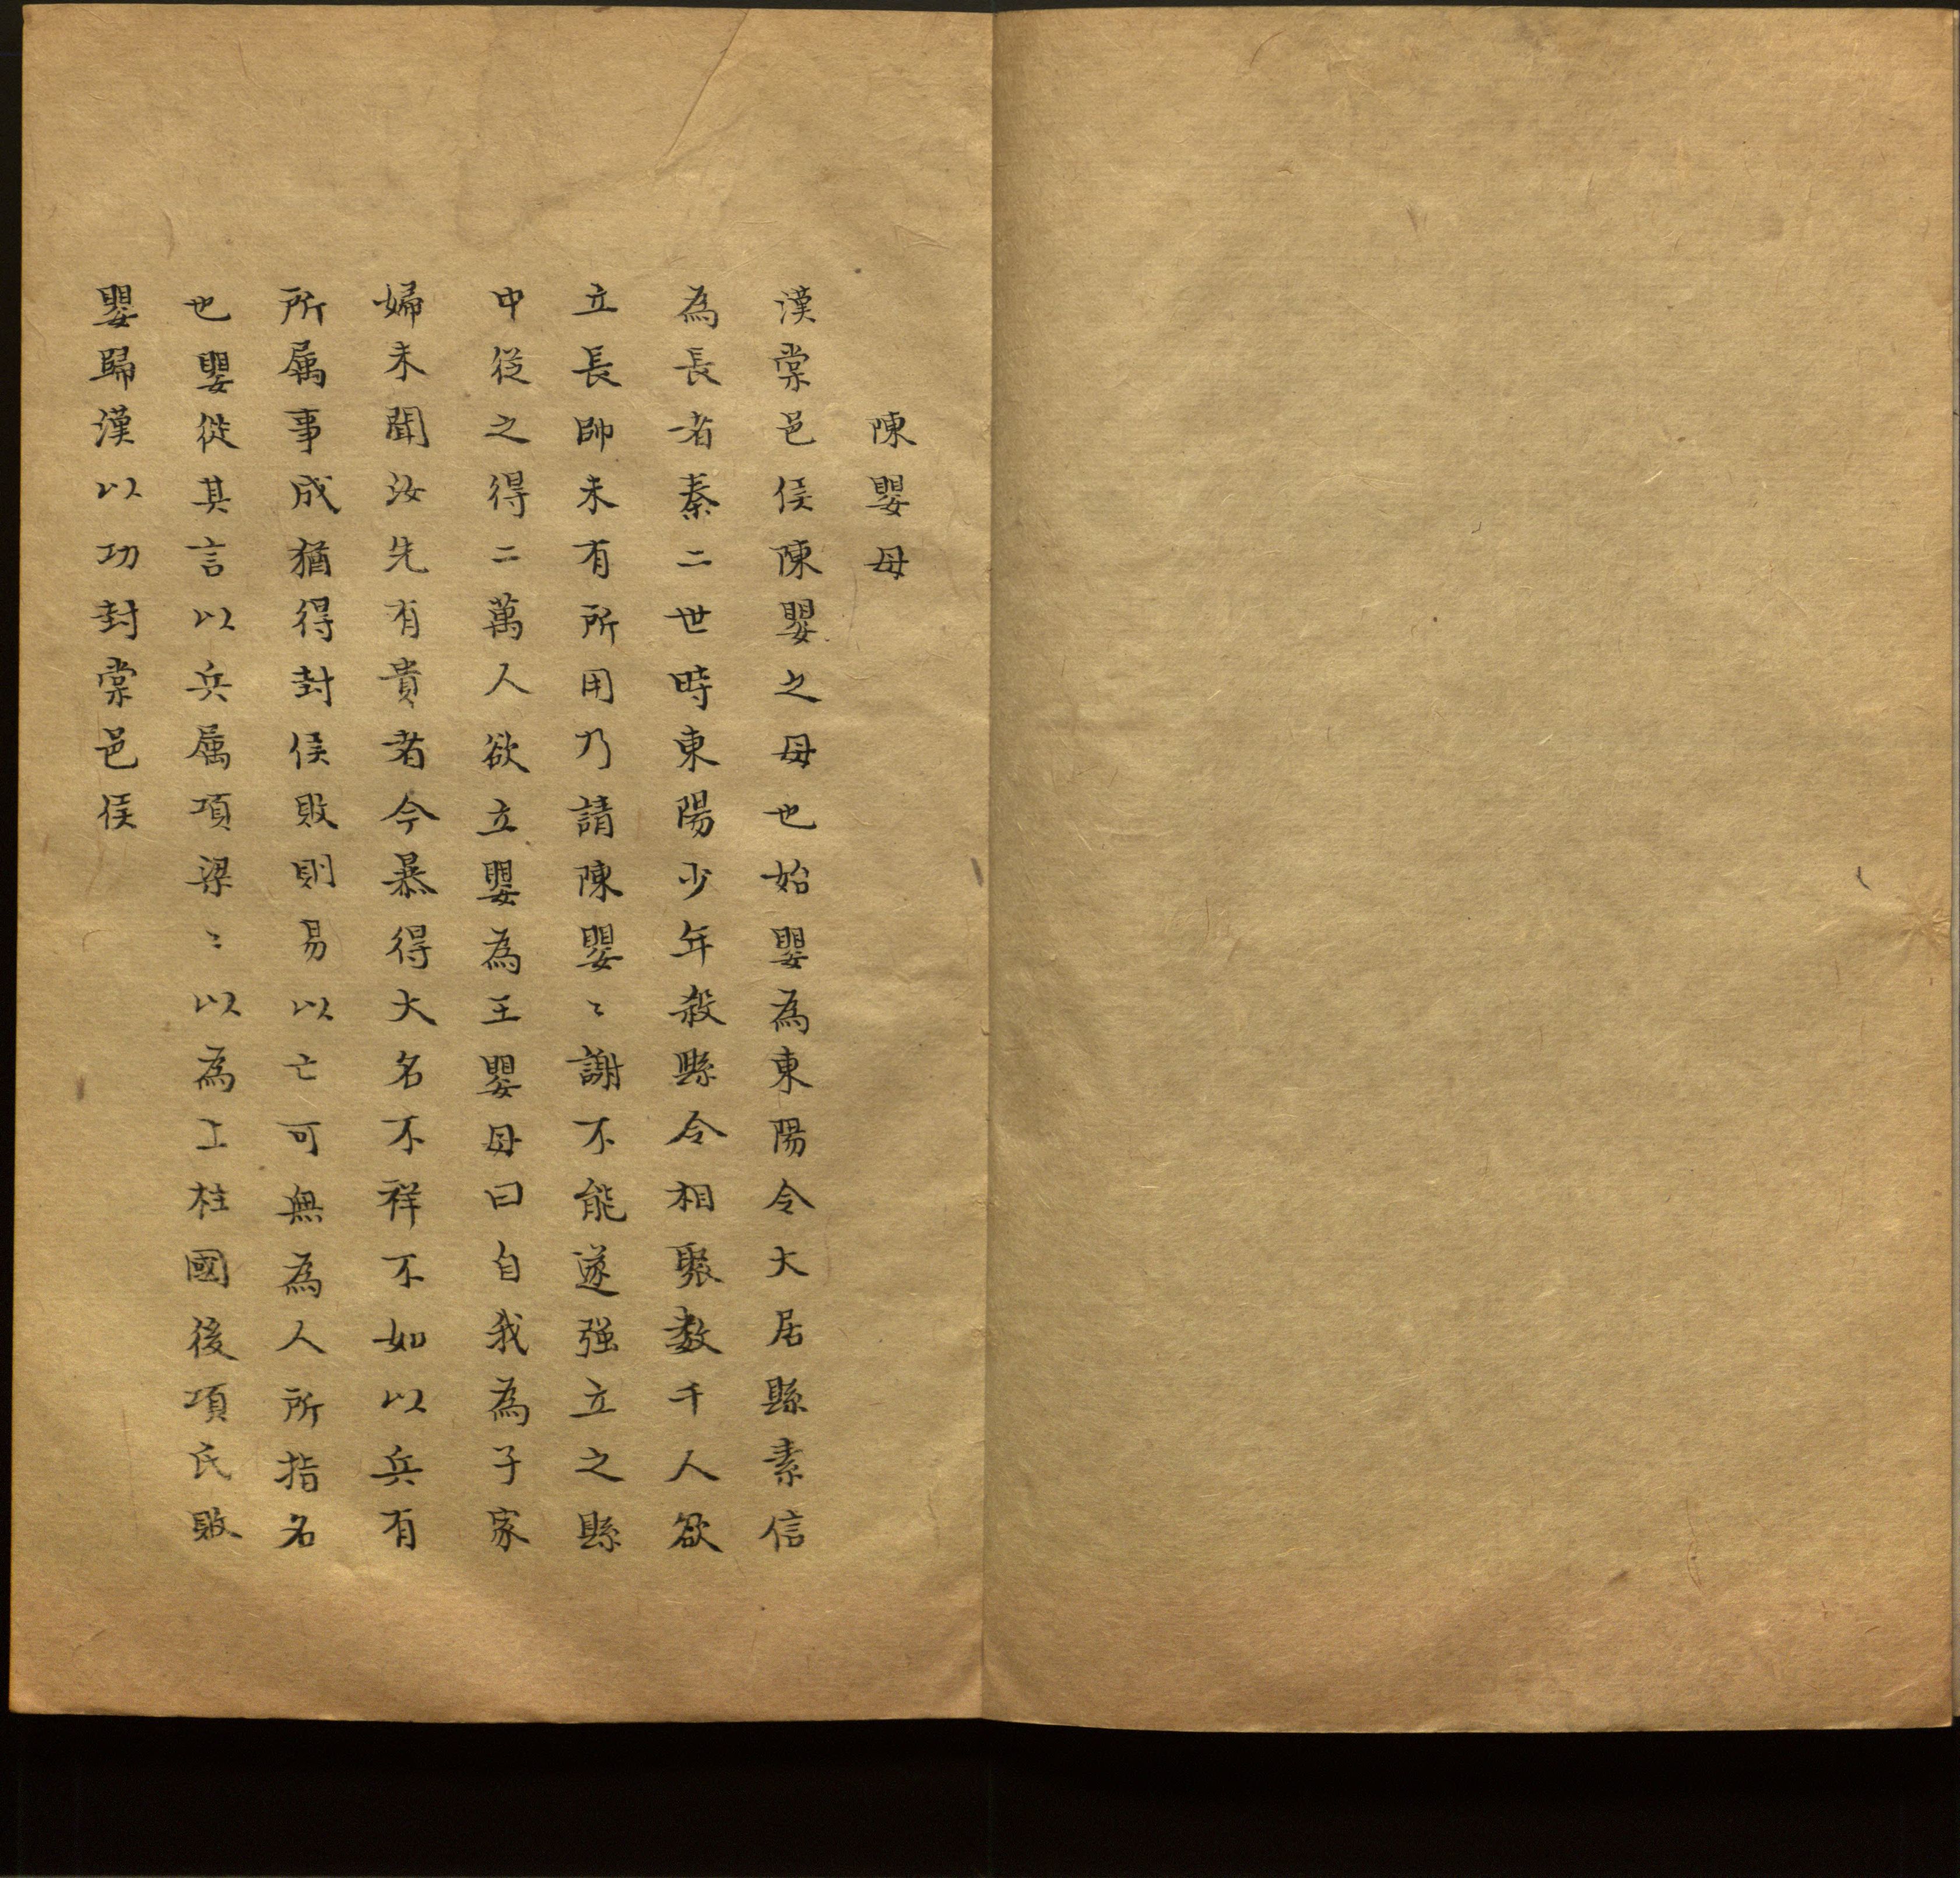 陳嬰母
漢棠邑侯陳嬰之母也始嬰為東陽令大居縣素信
為長者秦二世時東陽少年殺縣令相聚數千人欲
立長帥未有所用乃請陳嬰〻謝不能遂强立之縣
中從之得二萬人欲立嬰為王嬰母曰自我為子家
婦未聞汝先有貴者今暴得大名不祥不如以兵有
所属事成猶得封侯敗則易以亡可無為人所指名
也嬰從其言以兵属項梁〻以為上柱國後項氏敗
嬰歸漢以功封棠邑侯